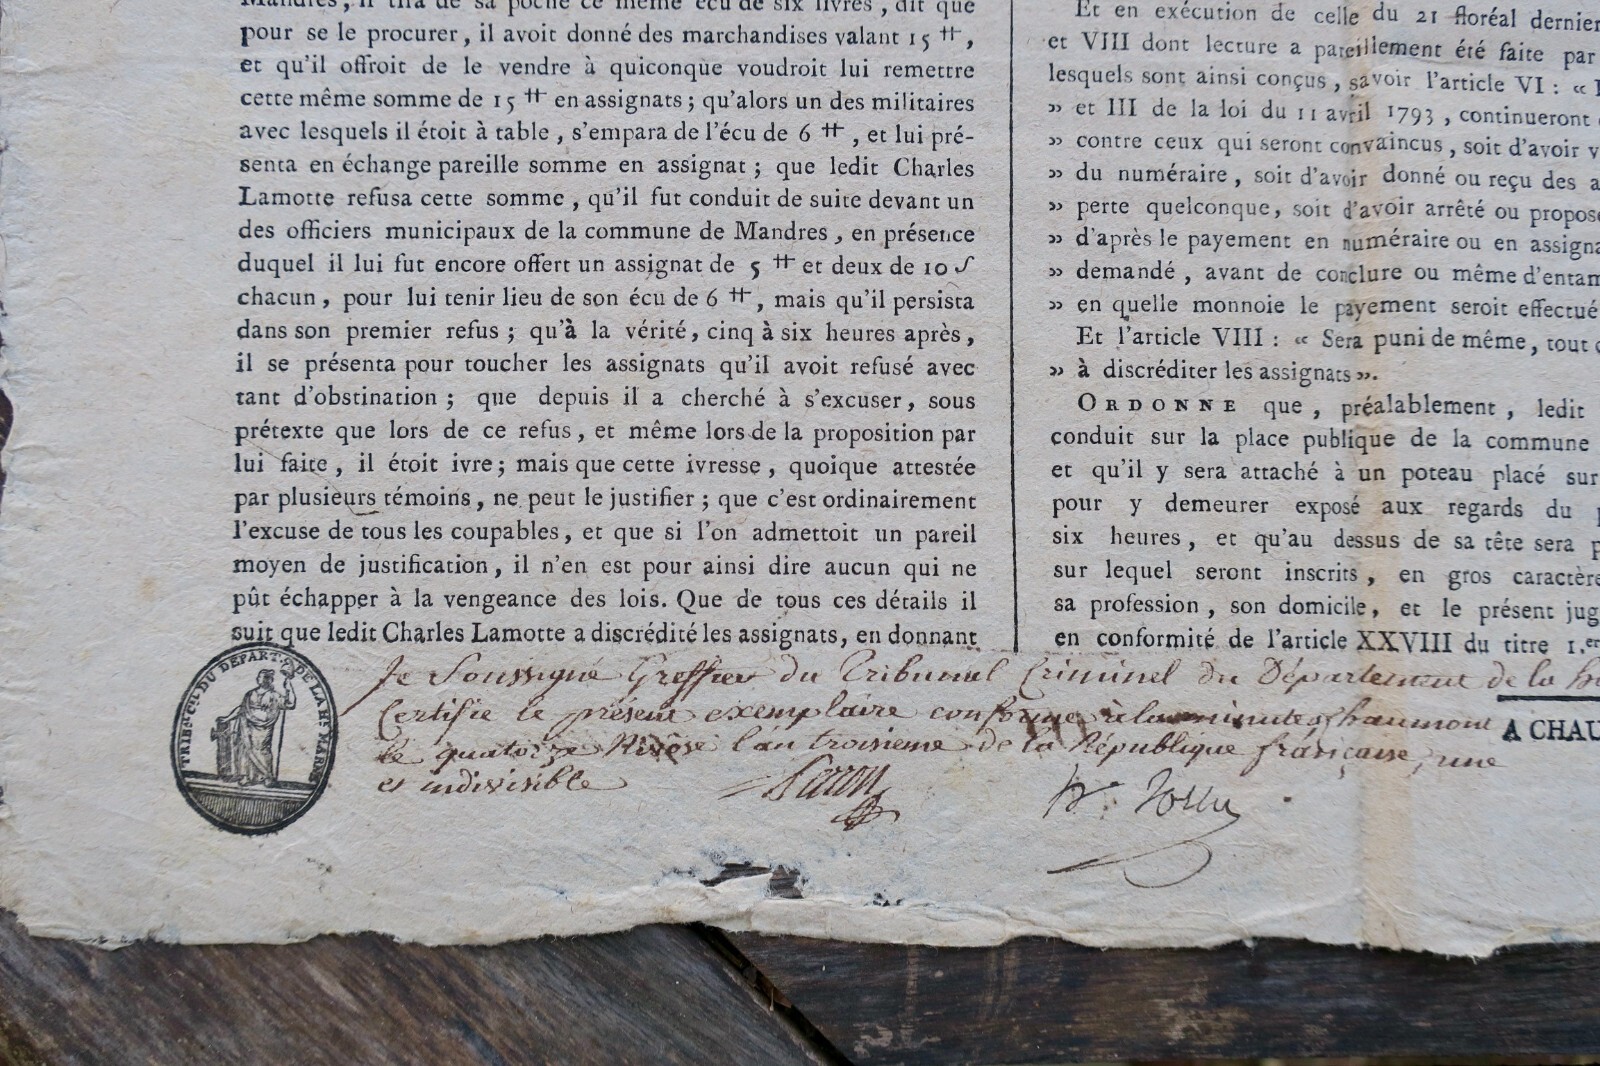 Mandres, il tira de sa poche ce même écu de six livres, dit que
pour se le procurer, il avoit donné des marchandises valant 15 ₶,
et qu'il offroit de le vendre à quiconque voudroit lui remettre
cette même somme de 15 ₶ en assignats; qu'alors un des militaires
avec lesquels il étoit à table, s'empara de l'écu de 6 ₶, et lui pré-
senta en échange pareille somme en assignat; que ledit Charles
Lamotte refusa cette somme, qu'il fut conduit de suite devant un
des officiers municipaux de la commune de Mandres, en présence
duquel il lui fut encore offert un assignat de 5 ₶ et deux de 10 ſ
chacun, pour lui tenir lieu de son écu de 6 ₶, mais qu'il persista
dans son premier refus; qu'à la vérité, cinq à six heures après,
il se présenta pour toucher les assignats qu'il avoit refusé avec
tant d'obstination; que depuis il a cherché à s'excuser, sous
prétexte que lors de ce refus, et même lors de la proposition par
lui faite, il étoit ivre; mais que cette ivresse, quoique attestée
par plusieurs témoins, ne peut le justifier; que c'est ordinairement
l'excuse de tous les coupables, et que si l'on admettoit un pareil
moyen de justification, il n'en est pour ainsi dire aucun qui ne
pût échapper à la vengeance des lois. Que de tous ces détails il
suit que ledit Charles Lamotte a discrédité les assignats, en donnant
Et en exécution de celle du 21 floréal dernier
et VIII dont lecture a pareillement été faite par
lesquels sont ainsi conçus, savoir l'article VI : «
» et III de la loi du 11 avril 1793, continueront
» contre ceux qui seront convaincus, soit d'avoir v
» du numéraire, soit d'avoir donné ou reçu des a
» perte quelconque, soit d'avoir arrêté ou propos
» d'après le payement en numéraire ou en assigna
» demandé, avant de conclure ou même d'entam
» en quelle monnoie le payement seroit effectué
Et l'article VIII : « Sera puni de même, tout
» à discréditer les assignats ».
ORDONNE que, préalablement, ledit
conduit sur la place publique de la commune
et qu'il y sera attaché à un poteau placé sur
pour y demeurer exposé aux regards du p
six heures, et qu'au dessus de sa tête sera p
sur lequel seront inscrits, en gros caractère
sa profession, son domicile, et le présent jug
en conformité de l'article XXVIII du titre 1.er
TRIB. CR. DU DEPART. DE LA H. MARNE
Je Soussigné Greffier du Tribunal Criminel du Département de la h
Certifie le présent exemplaire conforme à la minute chaumont
le quatorze Nivôse l'an troisieme de la République française, une
et indivisible
A CHAU